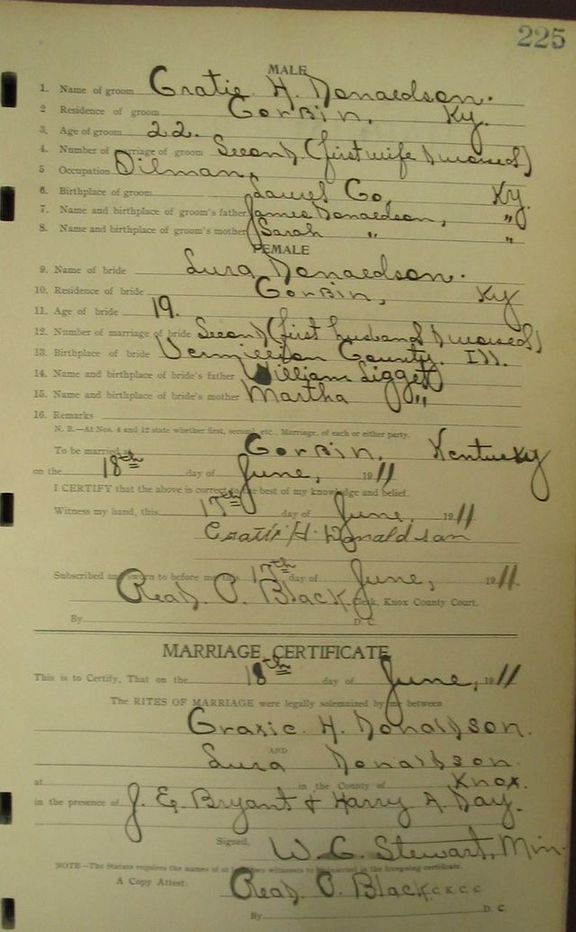 225
MALE
1. Name of groom Gratie H. Donaldson.
2 Residence of groom Corbin, Ky.
3. Age of groom 22.
4. Number of marriage of groom Second (first wife divorced)
5 Occupation Oilman,
6. Birthplace of groom Laurel Co, Ky.
7. Name and birthplace of groom's father James Donaldson, "
8. Name and birthplace of groom's mother Sarah " "
FEMALE
9. Name of bride Lura Donaldson.
10. Residence of bride Corbin, Ky
11. Age of bride 19.
12. Number of marriage of bride Second (first husband divorced)
13. Birthplace of bride Vermillion County. Ill.
14. Name and birthplace of bride's father William Liggett
15. Name and birthplace of bride's mother Martha "
16. Remarks
N. B.—At Nos. 4 and 12 state whether first, second, etc., Marriage, of each or either party.
To be married at Corbin, Kentucky
on the 18th day of June, 1911
I CERTIFY that the above is correct to the best of my knowledge and belief.
Witness my hand, this 17th day of June, 1911
Gratie H. Donaldson
Subscribed and sworn to before me this 17th day of June, 1911.
Read. P. Black, Clerk, Knox County Court.
By D. C.
MARRIAGE CERTIFICATE
This is to Certify, That on the 18th day of June, 1911
The RITES OF MARRIAGE were legally solemnized by me between
H. Donaldson.
AND
Lura Donaldson.
at in the County of Knox.
in the presence of J. E. Bryant & Harry A. Day.
Signed, W. C. Stewart, Min.
NOTE—The Statute requires the names of at least two witnesses to be inserted in the foregoing certificate.
A Copy Attest: Read. P. Black C.K.C.C
By D. C.